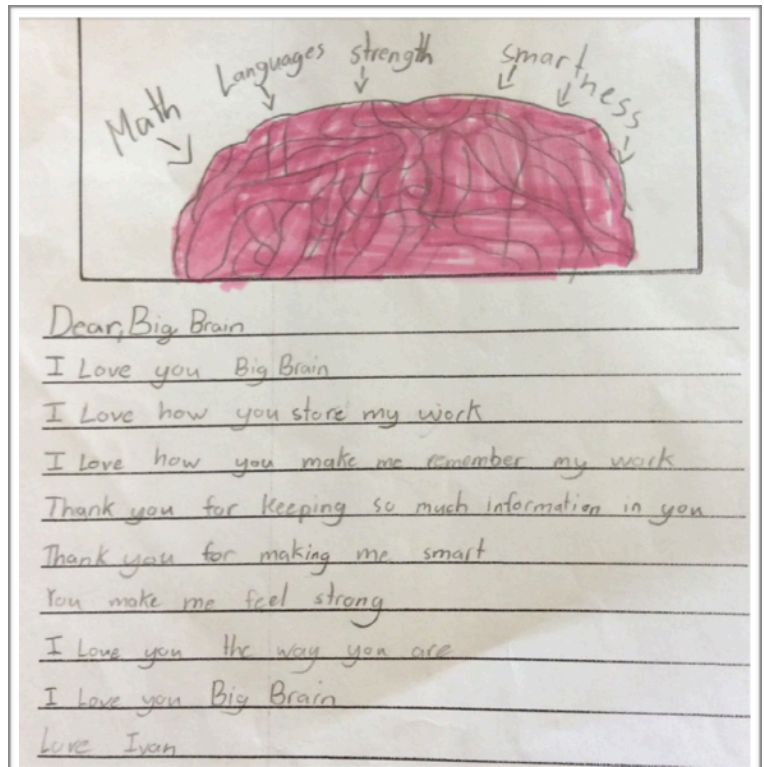 Math Languages strength smartness
Dear, Big Brain
I Love you Big Brain
I Love how you store my work
I Love how you make me remember my work
Thank you for keeping so much information in you
Thank you for making me smart
You make me feel strong
I Love you the way you are
I Love you Big Brain
Love Ivan